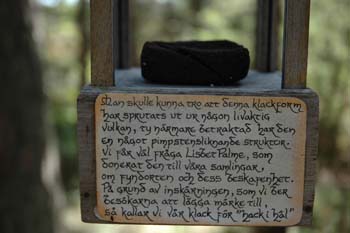 Man skulle kunna tro att denna klackform
har sprutats ut ur någon livaktig
vulkan, ty närmare betraktad har den
en något pimpstensliknande struktur.
Vi får väl fråga Lisbet Palme, som
donerat den till våra samlingar,
om fyndorten och dess beskaffenhet.
På grund av inskärningen, som vi ber
besökarna att lägga märke till,
så kallar vi vår klack för "hack i häl"